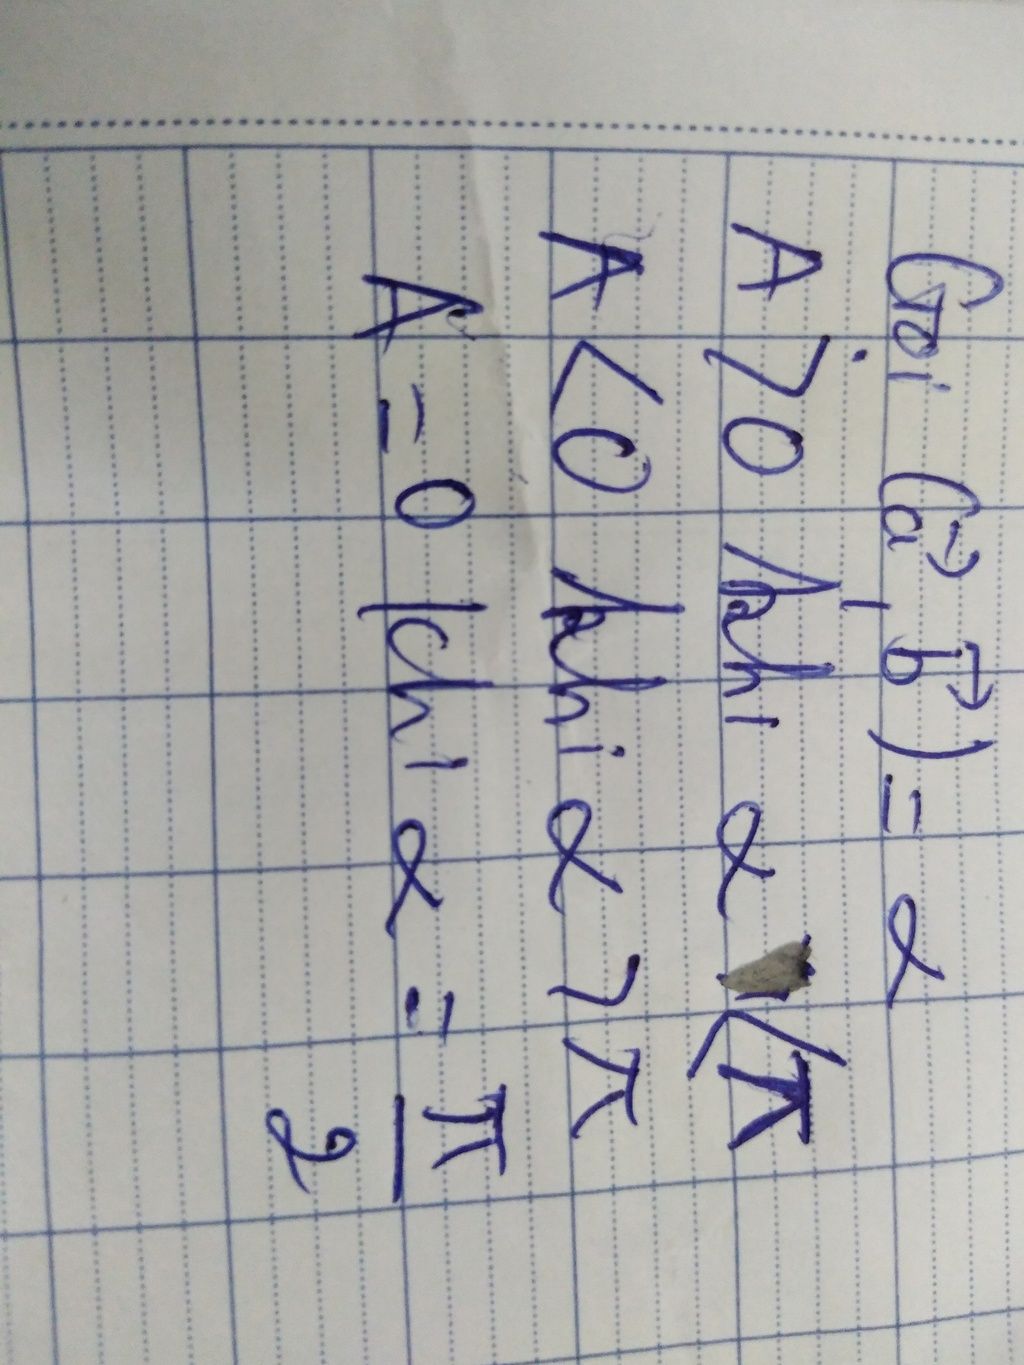 Gọi (a→, b→) = α
A > 0 khi α < π
A < 0 khi α > π
A = 0 khi α = π/2